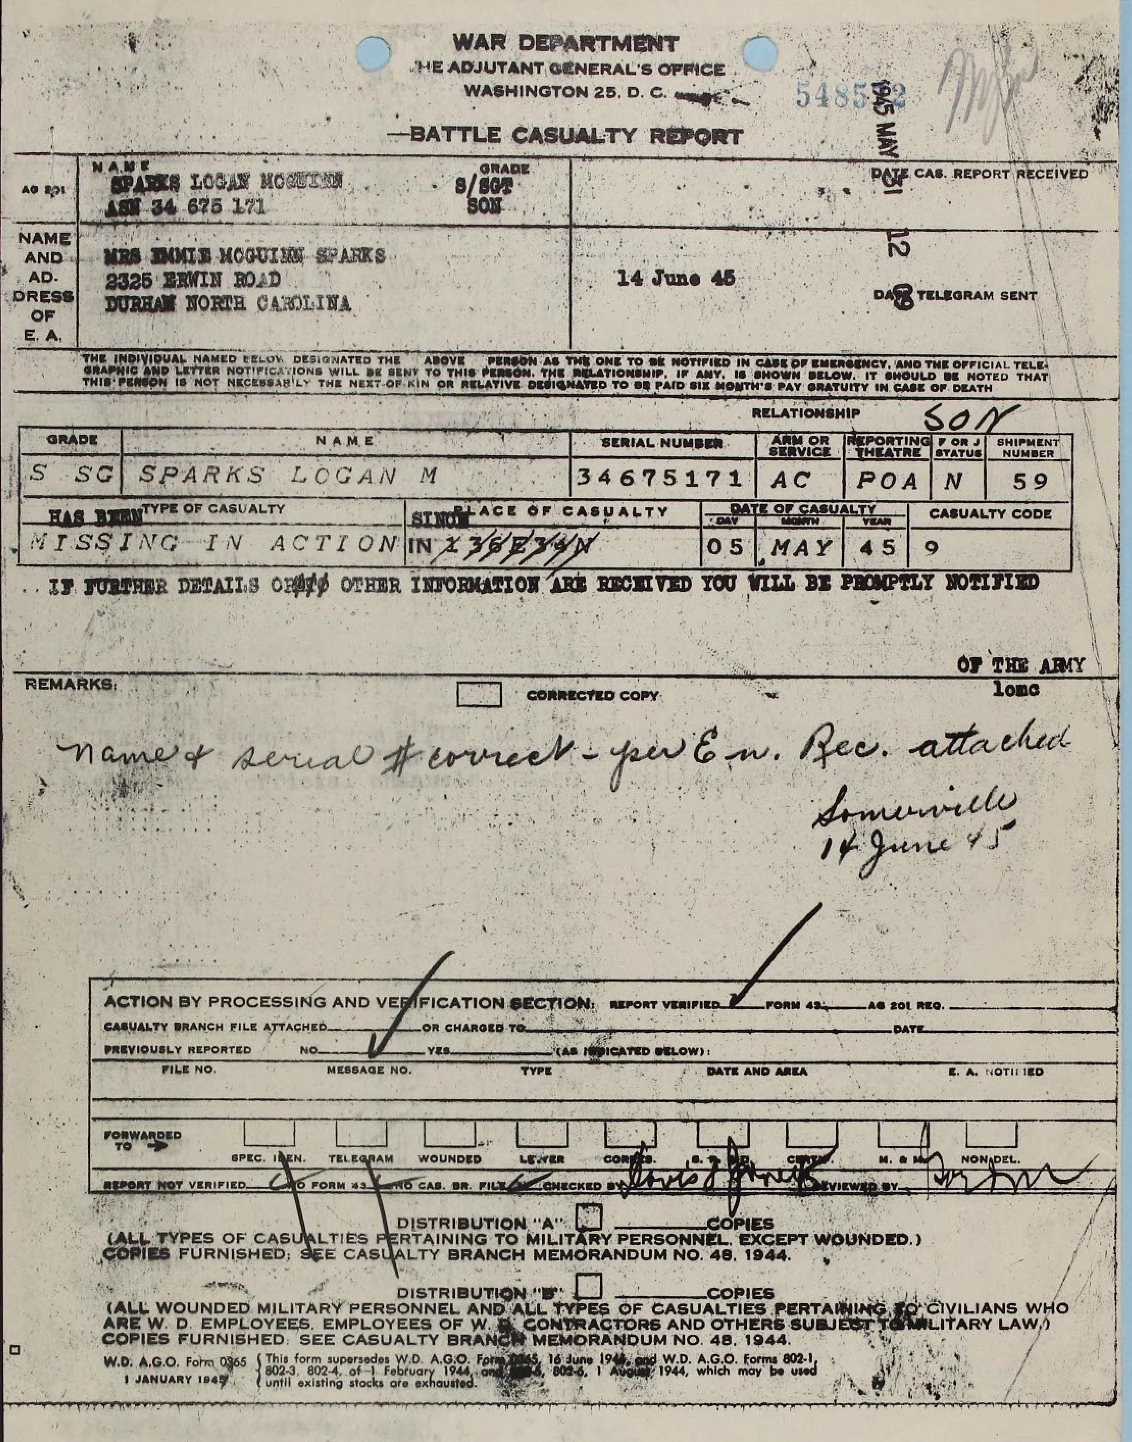 WAR DEPARTMENT
HE ADJUTANT GENERAL'S OFFICE
WASHINGTON 25, D. C.
1945 MAY 31 12 09
BATTLE CASUALTY REPORT
AG 201
NAME
GRADE
SPARKS LOGAN MCGUINN
S/SGT
ASN 34 675 171
SON
DATE CAS. REPORT RECEIVED
NAME AND AD. DRESS OF E. A.
MRS EMMIE MCGUINN SPARKS
2325 ERWIN ROAD
DURHAM NORTH CAROLINA
14 June 45
TELEGRAM SENT
THE INDIVIDUAL NAMED BELOW DESIGNATED THE ABOVE PERSON AS THE ONE TO BE NOTIFIED IN CASE OF EMERGENCY, AND THE OFFICIAL TELE-
GRAPHIC AND LETTER NOTIFICATIONS WILL BE SENT TO THIS PERSON. THE RELATIONSHIP, IF ANY, IS SHOWN BELOW. IT SHOULD BE NOTED THAT
THIS PERSON IS NOT NECESSARILY THE NEXT-OF-KIN OR RELATIVE DESIGNATED TO BE PAID SIX MONTH'S PAY GRATUITY IN CASE OF DEATH
RELATIONSHIP SON
GRADE NAME SERIAL NUMBER ARM OR SERVICE REPORTING THEATRE F OR J STATUS SHIPMENT NUMBER
S SG SPARKS LOGAN M 34675171 AC POA N 59
HAS BEEN TYPE OF CASUALTY PLACE OF CASUALTY DATE OF CASUALTY CASUALTY CODE
DAY MONTH YEAR
MISSING IN ACTION IN 05 MAY 45 9
IF FURTHER DETAILS OR OTHER INFORMATION ARE RECEIVED YOU WILL BE PROMPTLY NOTIFIED
OF THE ARMY
REMARKS:
CORRECTED COPY
lomc
Name & serial # correct - per En. Rec. attached
Somerville
14 June 45
ACTION BY PROCESSING AND VERIFICATION SECTION: REPORT VERIFIED FORM 43 AG 201 REQ.
CASUALTY BRANCH FILE ATTACHED OR CHARGED TO DATE
PREVIOUSLY REPORTED NO YES (AS INDICATED BELOW):
FILE NO. MESSAGE NO. TYPE DATE AND AREA E. A. NOTIFIED
FORWARDED TO
SPEC. IDEN. TELEGRAM WOUNDED LETTER CORRES. CERTIF. M. & M. NONDEL.
REPORT NOT VERIFIED NO FORM 43 NO CAS. BR. FILE CHECKED BY REVIEWED BY
DISTRIBUTION "A" COPIES
(ALL TYPES OF CASUALTIES PERTAINING TO MILITARY PERSONNEL, EXCEPT WOUNDED.)
COPIES FURNISHED: SEE CASUALTY BRANCH MEMORANDUM NO. 48, 1944.
DISTRIBUTION "B" COPIES
(ALL WOUNDED MILITARY PERSONNEL AND ALL TYPES OF CASUALTIES PERTAINING TO CIVILIANS WHO
ARE W. D. EMPLOYEES, EMPLOYEES OF W. D. CONTRACTORS AND OTHERS SUBJECT TO MILITARY LAW.)
COPIES FURNISHED: SEE CASUALTY BRANCH MEMORANDUM NO. 48, 1944.
W.D. A.G.O. Form 0365
1 JANUARY 1945
This form supersedes W.D. A.G.O. Form 0365, 16 June 1944, and W.D. A.G.O. Forms 802-1,
802-3, 802-4, of 1 February 1944, and 802-6, 1 August 1944, which may be used
until existing stocks are exhausted.